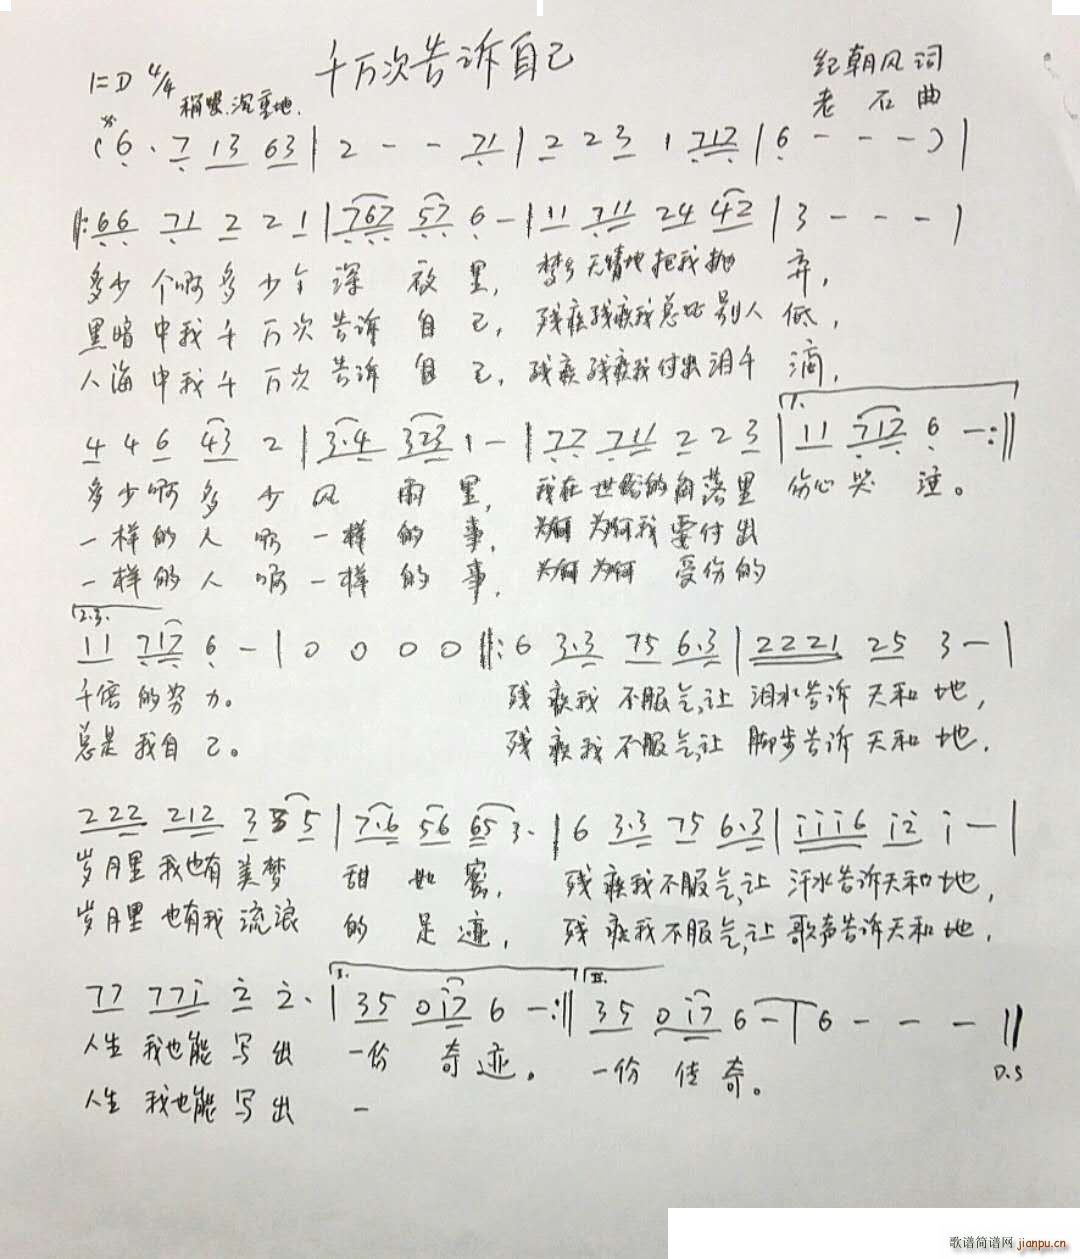 千万次告诉自己
1=D 4/4 稍慢.沉重地.
纪朝风词
老石曲
(6· 7 13 63 | 2 - - 71 | 2 2 3 1 717 | 6 - - - ) |
||: 66 71 2 2 1 | 767 57 6 - | 11 711 24 42 | 3 - - - |
多少个啊多少个深夜里, 梦乡无情地把我抛弃,
黑暗中我千万次告诉自己, 残疾残疾我总比别人低,
人海中我千万次告诉自己, 残疾残疾我付出泪千滴,
4 4 6 43 2 | 3·4 323 1 - | 77 711 2 2 3 | 1. 11 717 6 - :||
多少啊多少风雨里, 我在世俗的角落里伤心哭泣。
一样的人啊一样的事, 为何为何我要付出
一样的人啊一样的事, 为何为何受伤的
2.3.
11 717 6 - | 0 0 0 0 ||: 6 3·3 75 6·3 | 2221 25 3 - |
千倍的努力。 残疾我不服气,让泪水告诉天和地,
总是我自己。 残疾我不服气,让脚步告诉天和地,
222 212 3 5 5 | 7·6 56 65 3· | 6 3·3 75 6·3 | i i i 6 i 2 i - |
岁月里我也有美梦甜如蜜, 残疾我不服气,让汗水告诉天和地,
岁月里也有我流浪的足迹, 残疾我不服气,让歌声告诉天和地,
77 77i 2 2· | I. 35 0i7 6 - :|| II. 35 0i7 6 - | 6 - - - ||
人生我也能写出一份奇迹。 一份传奇。
D.S
人生我也能写出一
歌谱简谱网 jianpu.cn